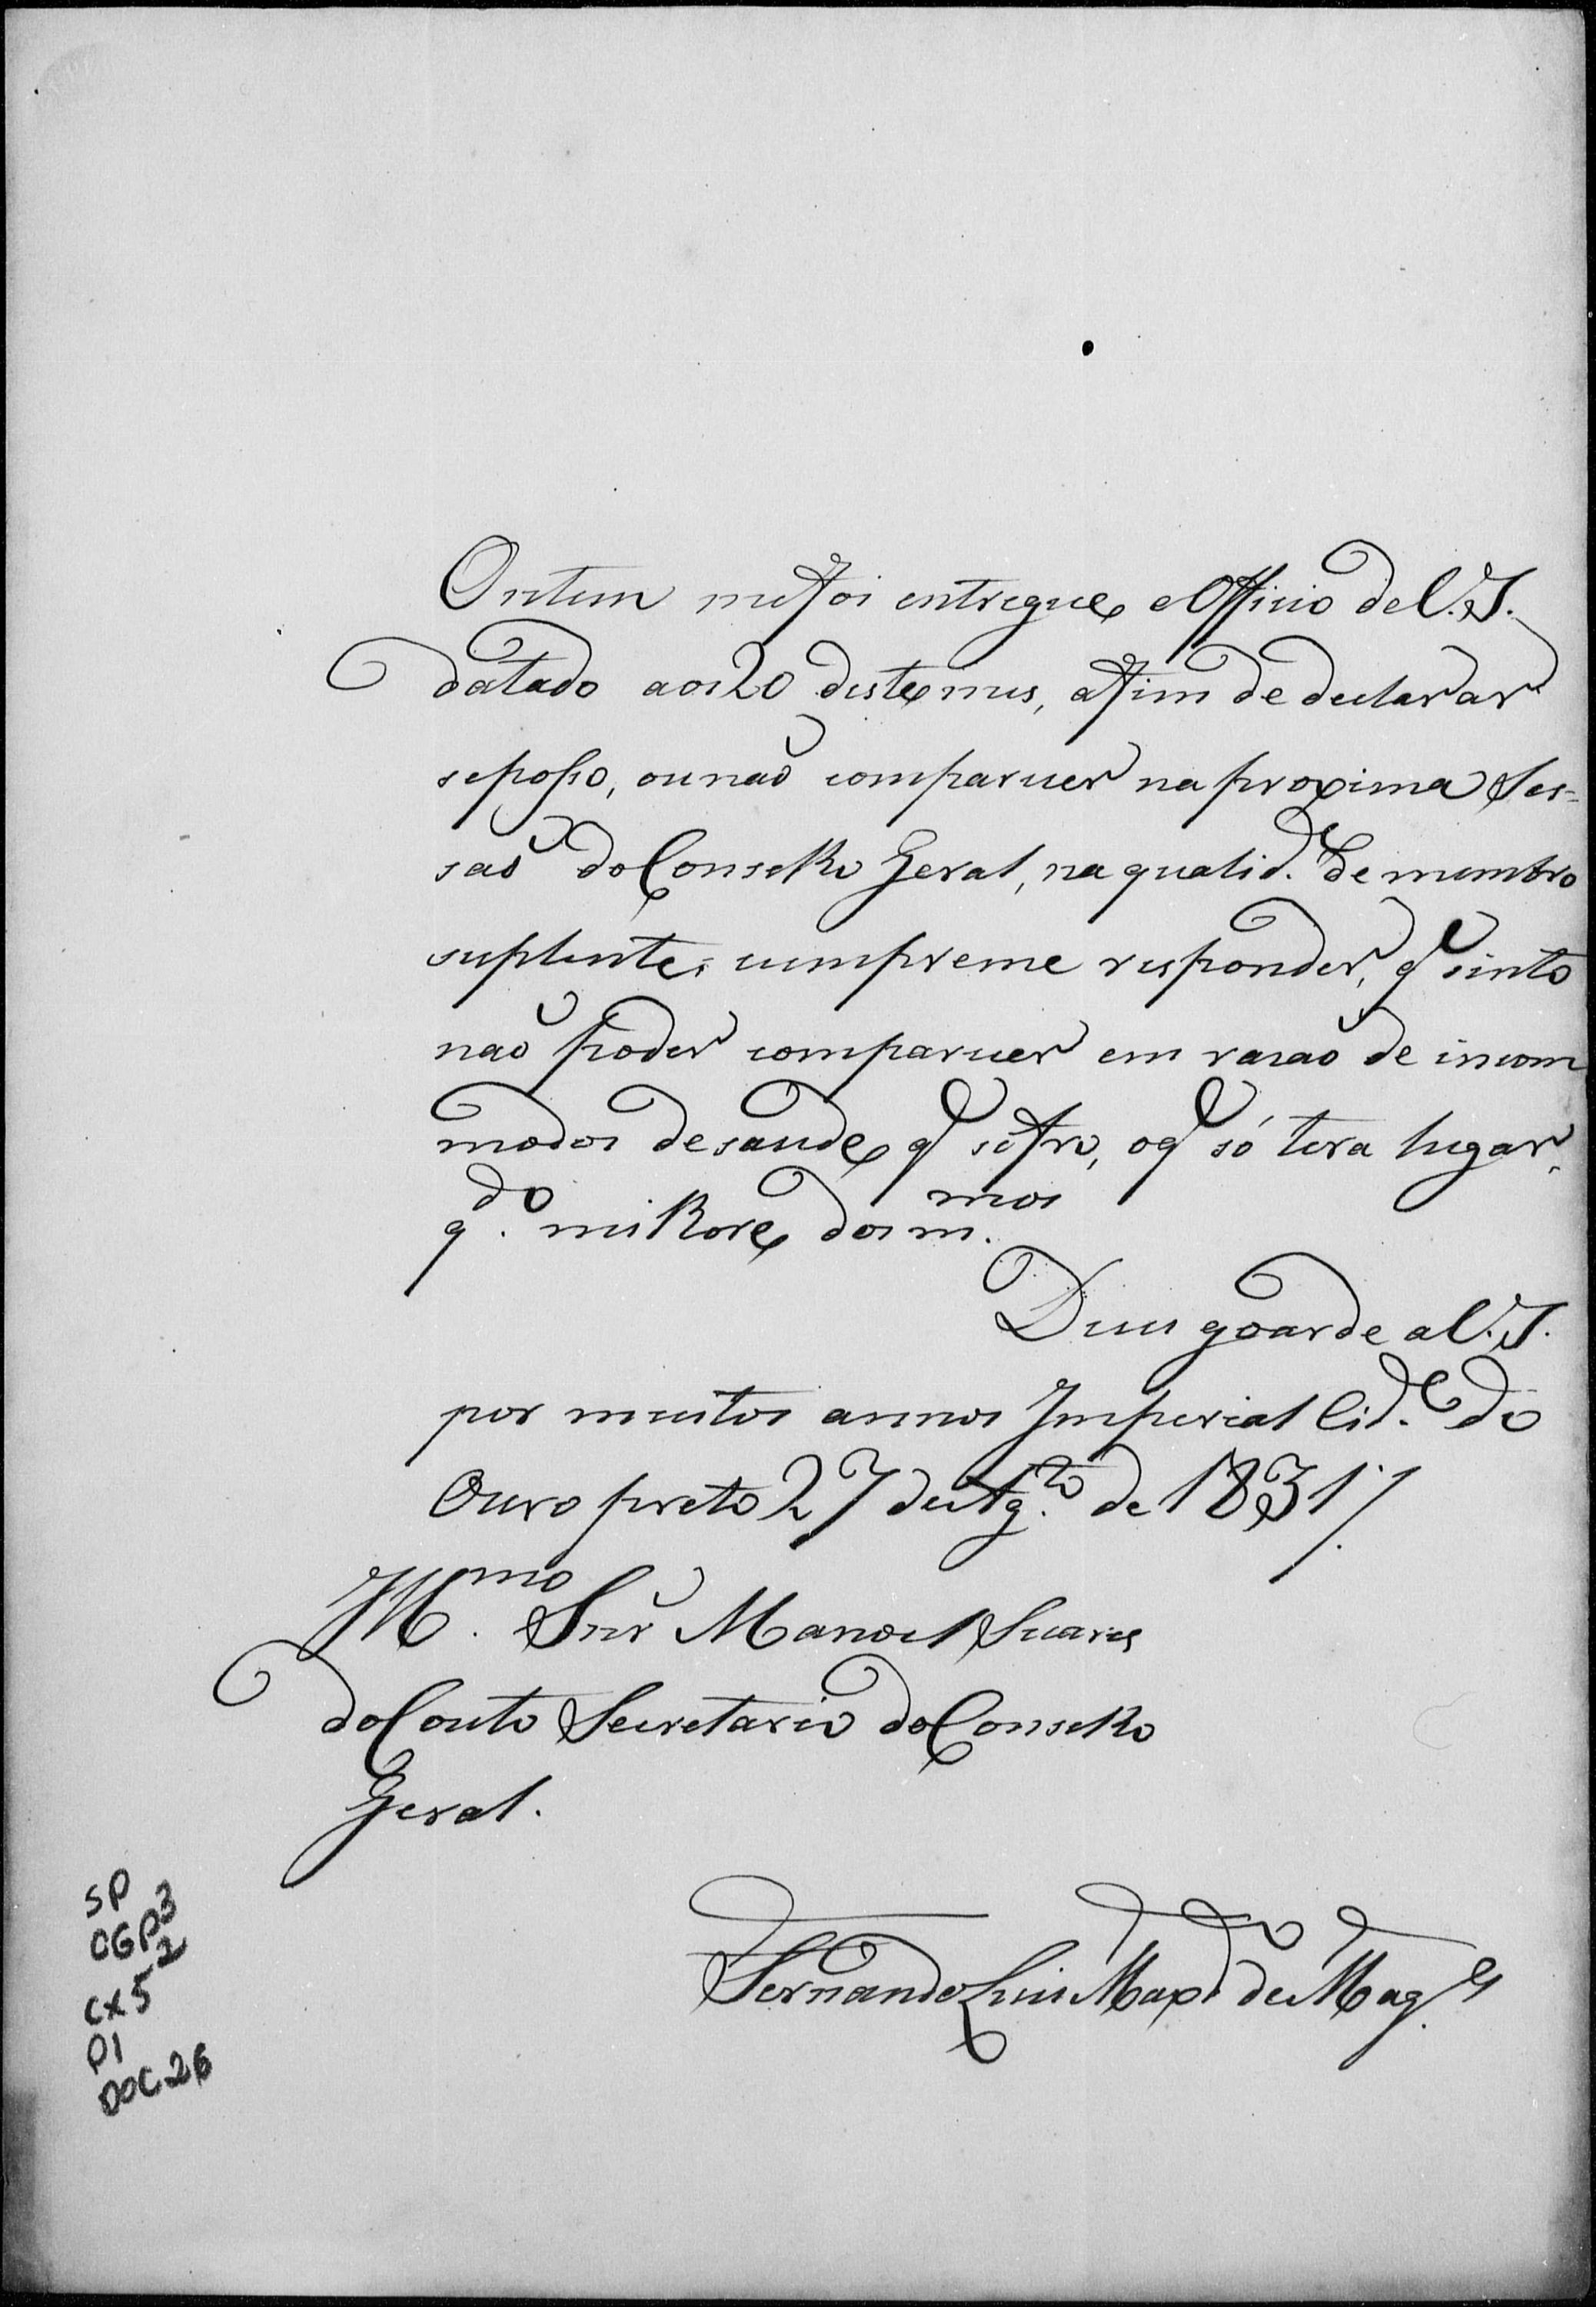 Ontem me foi entregue o Officio de V. S.
datado aos 20 deste mes, afim de declarar
se posso, ou naõ comparecer na proxima Ses=
saõ do Conselho Geral, na qualid.e de membro
suplente; cumpreme responder, q' sinto
naõ poder comparecer em rasaõ de incom
modos de saude q' sofro, o q' só tera lugar,
q.do milhore dos m.mos
Deus goarde a V. S.
por muitos annos Imperial Cid.e do
Ouro preto 27 de Ag.to de 1831
Ill.mo Snr' Manoel Suares
do Couto Secretario do Conselho
Geral.
Fernando Luis Maxd.o de Mag.es
SP
CGP3
2
CX5
P1
DOC.26